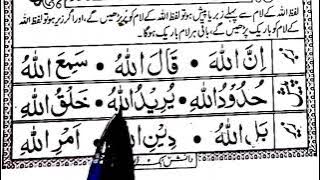 لفظ اللہ کے لام سے پہلے زبر یا پیش ہو تو لفظ اللہ کے لام کو پُر پڑھیں گے، اور اگر زیر ہو تو لفظ اللہ
کے لام کو باریک پڑھیں گے، باقی ہر لام باریک ہوگا۔
زبر اِنَّ اللهُ • قَالَ اللهُ • سَمِعَ اللهُ
پیش حُدُوْدُ اللهِ • يُرِيْدُ اللهُ • خَلْقُ اللهِ
زیر بَلِ اللهُ • دِيْنِ اللهِ • اَمْرِ اللهِ